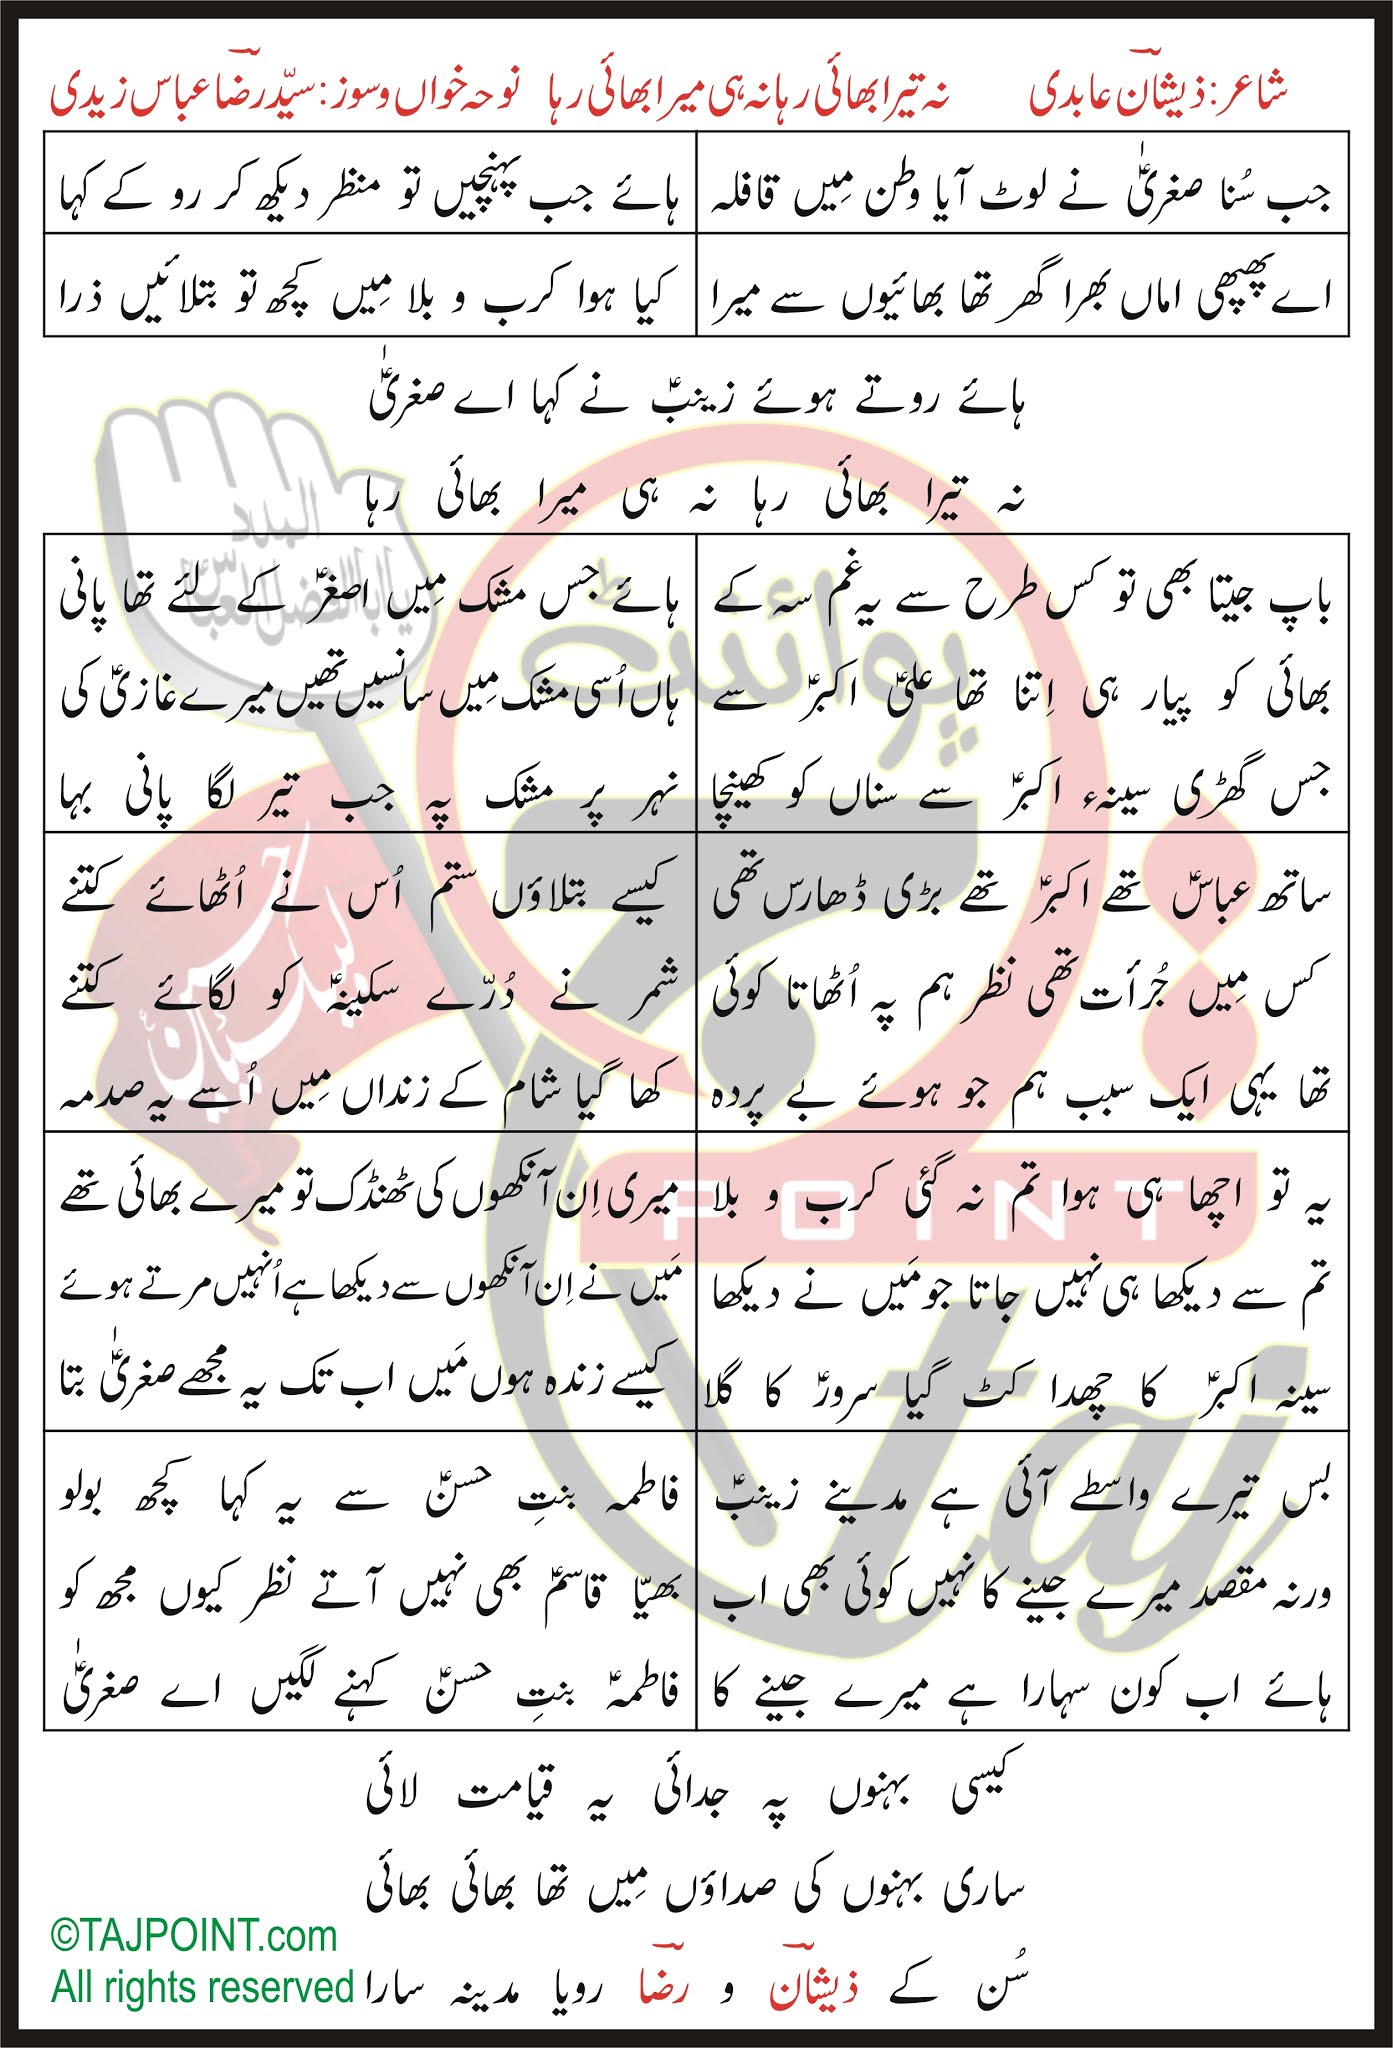 شاعر: ذیشان عابدی نہ تیرا بھائی رہا نہ ہی میرا بھائی رہا نوحہ خواں و سوز: سیّد رضا عباس زیدی
جب سُنا صغریٰؑ نے لوٹ آیا وطن مِیں قافلہ
ہائے جب پہنچیں تو منظر دیکھ کر رو کے کہا
اے پھپھی اماں بھرا گھر تھا بھائیوں سے میرا
کیا ہوا کرب و بلا مِیں کچھ تو بتلائیں ذرا
ہائے روتے ہوئے زینبؑ نے کہا اے صغریٰؑ
نہ تیرا بھائی رہا نہ ہی میرا بھائی رہا
باپ جیتا بھی تو کس طرح سے یہ غم سہ کے
بھائی کو پیار ہی اِتنا تھا علیؑ اکبرؑ سے
جس گھڑی سینہء اکبرؑ سے سناں کو کھینچا
ہائے جس مشک مِیں اصغرؑ کے لئے تھا پانی
ہاں اُسی مشک مِیں سانسیں تھیں میرے غازیؑ کی
نہر پر مشک پہ جب تیر لگا پانی بہا
ساتھ عباسؑ تھے اکبرؑ تھے بڑی ڈھارس تھی
کس مِیں جُرأت تھی نظر ہم پہ اُٹھاتا کوئی
تھا یہی ایک سبب ہم جو ہوئے بے پردہ
کیسے بتلاؤں ستم اُس نے اُٹھائے کتنے
شمر نے دُرّے سکینہؑ کو لگائے کتنے
کھا گیا شام کے زنداں مِیں اُسے یہ صدمہ
یہ تو اچھا ہی ہوا تم نہ گئی کرب و بلا
تم سے دیکھا ہی نہیں جاتا جو مَیں نے دیکھا
سینہ اکبرؑ کا چھدا کٹ گیا سرورؑ کا گلا
میری اِن آنکھوں کی ٹھنڈک تو میرے بھائی تھے
مَیں نے اِن آنکھوں سے دیکھا ہے اُنہیں مرتے ہوئے
کیسے زندہ ہوں مَیں اب تک یہ مجھے صغریٰؑ بتا
بس تیرے واسطے آئی ہے مدینے زینبؑ
ورنہ مقصد میرے جینے کا نہیں کوئی بھی اب
ہائے اب کون سہارا ہے میرے جینے کا
فاطمہ بنتِ حسنؑ سے یہ کہا کچھ بولو
بھیّا قاسمؑ بھی نہیں آتے نظر کیوں مجھ کو
فاطمہؑ بنتِ حسنؑ کہنے لگیں اے صغریٰؑ
کیسی بہنوں پہ جدائی یہ قیامت لائی
ساری بہنوں کی صداؤں مِیں تھا بھائی بھائی
سُن کے ذیشان و رضا رویا مدینہ سارا
©TAJPOINT.com
All rights reserved
پوائنٹ
POINT
taj
لبیک یا حسینؑ